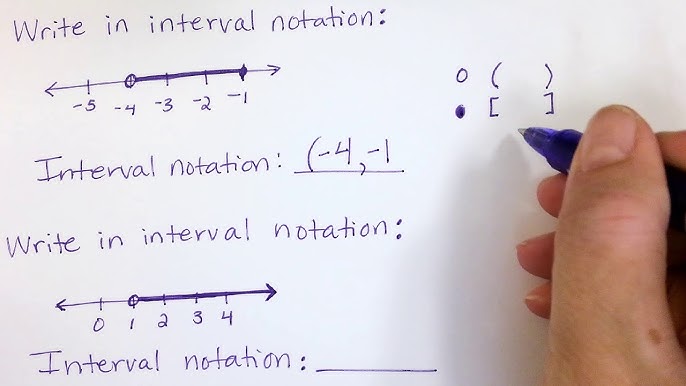 Write in interval notation:
-5 -4 -3 -2 -1
( )
[ ]
Interval notation: (-4, -1
Write in interval notation:
0 1 2 3 4
Interval notation: